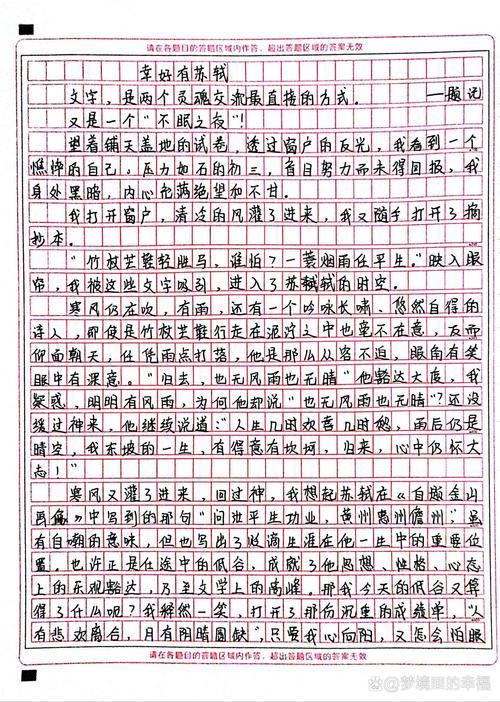 请在各题目的答题区域内作答，超出答题区域的答案无效
幸好有苏轼
文字，是两个灵魂交流最直接的方式。 ——题记
又是一个“不眠之夜”！
望着铺天盖地的试卷，透过窗户的反光，我看到一个
憔悴的自己。压力如石的初三，盲目努力而未得回报，我
身处黑暗，内心充满绝望和不甘。
我打开窗户，清冷的风灌了进来，我又随手打开了摘
抄本。
“竹杖芒鞋轻胜马，谁怕？一蓑烟雨任平生。”映入眼
帘，我被这些文字吸引，进入了苏轼的时空。
寒风仍在吹，有雨，还有一个吟咏长啸、悠然自得的
诗人，即使是竹杖芒鞋行走在泥泞之中也毫不在意，反而
仰面朝天，任凭雨点打落，他是那么从容不迫，眼角有笑
眼中有深意。“归去，也无风雨也无晴”他豁达大度，我
疑惑，明明有风雨，为何他却说“也无风雨也无晴”？还没
缓过神来，他继续说道：“人生几时欢喜几时愁，雨后仍是
晴空，我东坡的一生，有得意有坎坷，归来，心中仍怀大
志！”
寒风又灌了进来，回过神，我想起苏轼在《自题金山
画像》中写到的那句“问汝平生功业，黄州惠州儋州”，虽
有自嘲的意味，但也写出了收谪生涯在他一生中的重要位
置。也许正是仕途中的低谷，成就了他思想、性格、心态
上的乐观豁达，乃至文学上的高峰。那我今天的低谷又算
得了什么呢？我释然一笑，打开了那份沉重的成绩单，“人
有悲欢离合，月有阴晴圆缺”，只要我心向阳，又怎会怕眼
请在各题目的答题区域内作答，超出答题区域的答案无效
@梦境眼的幸福